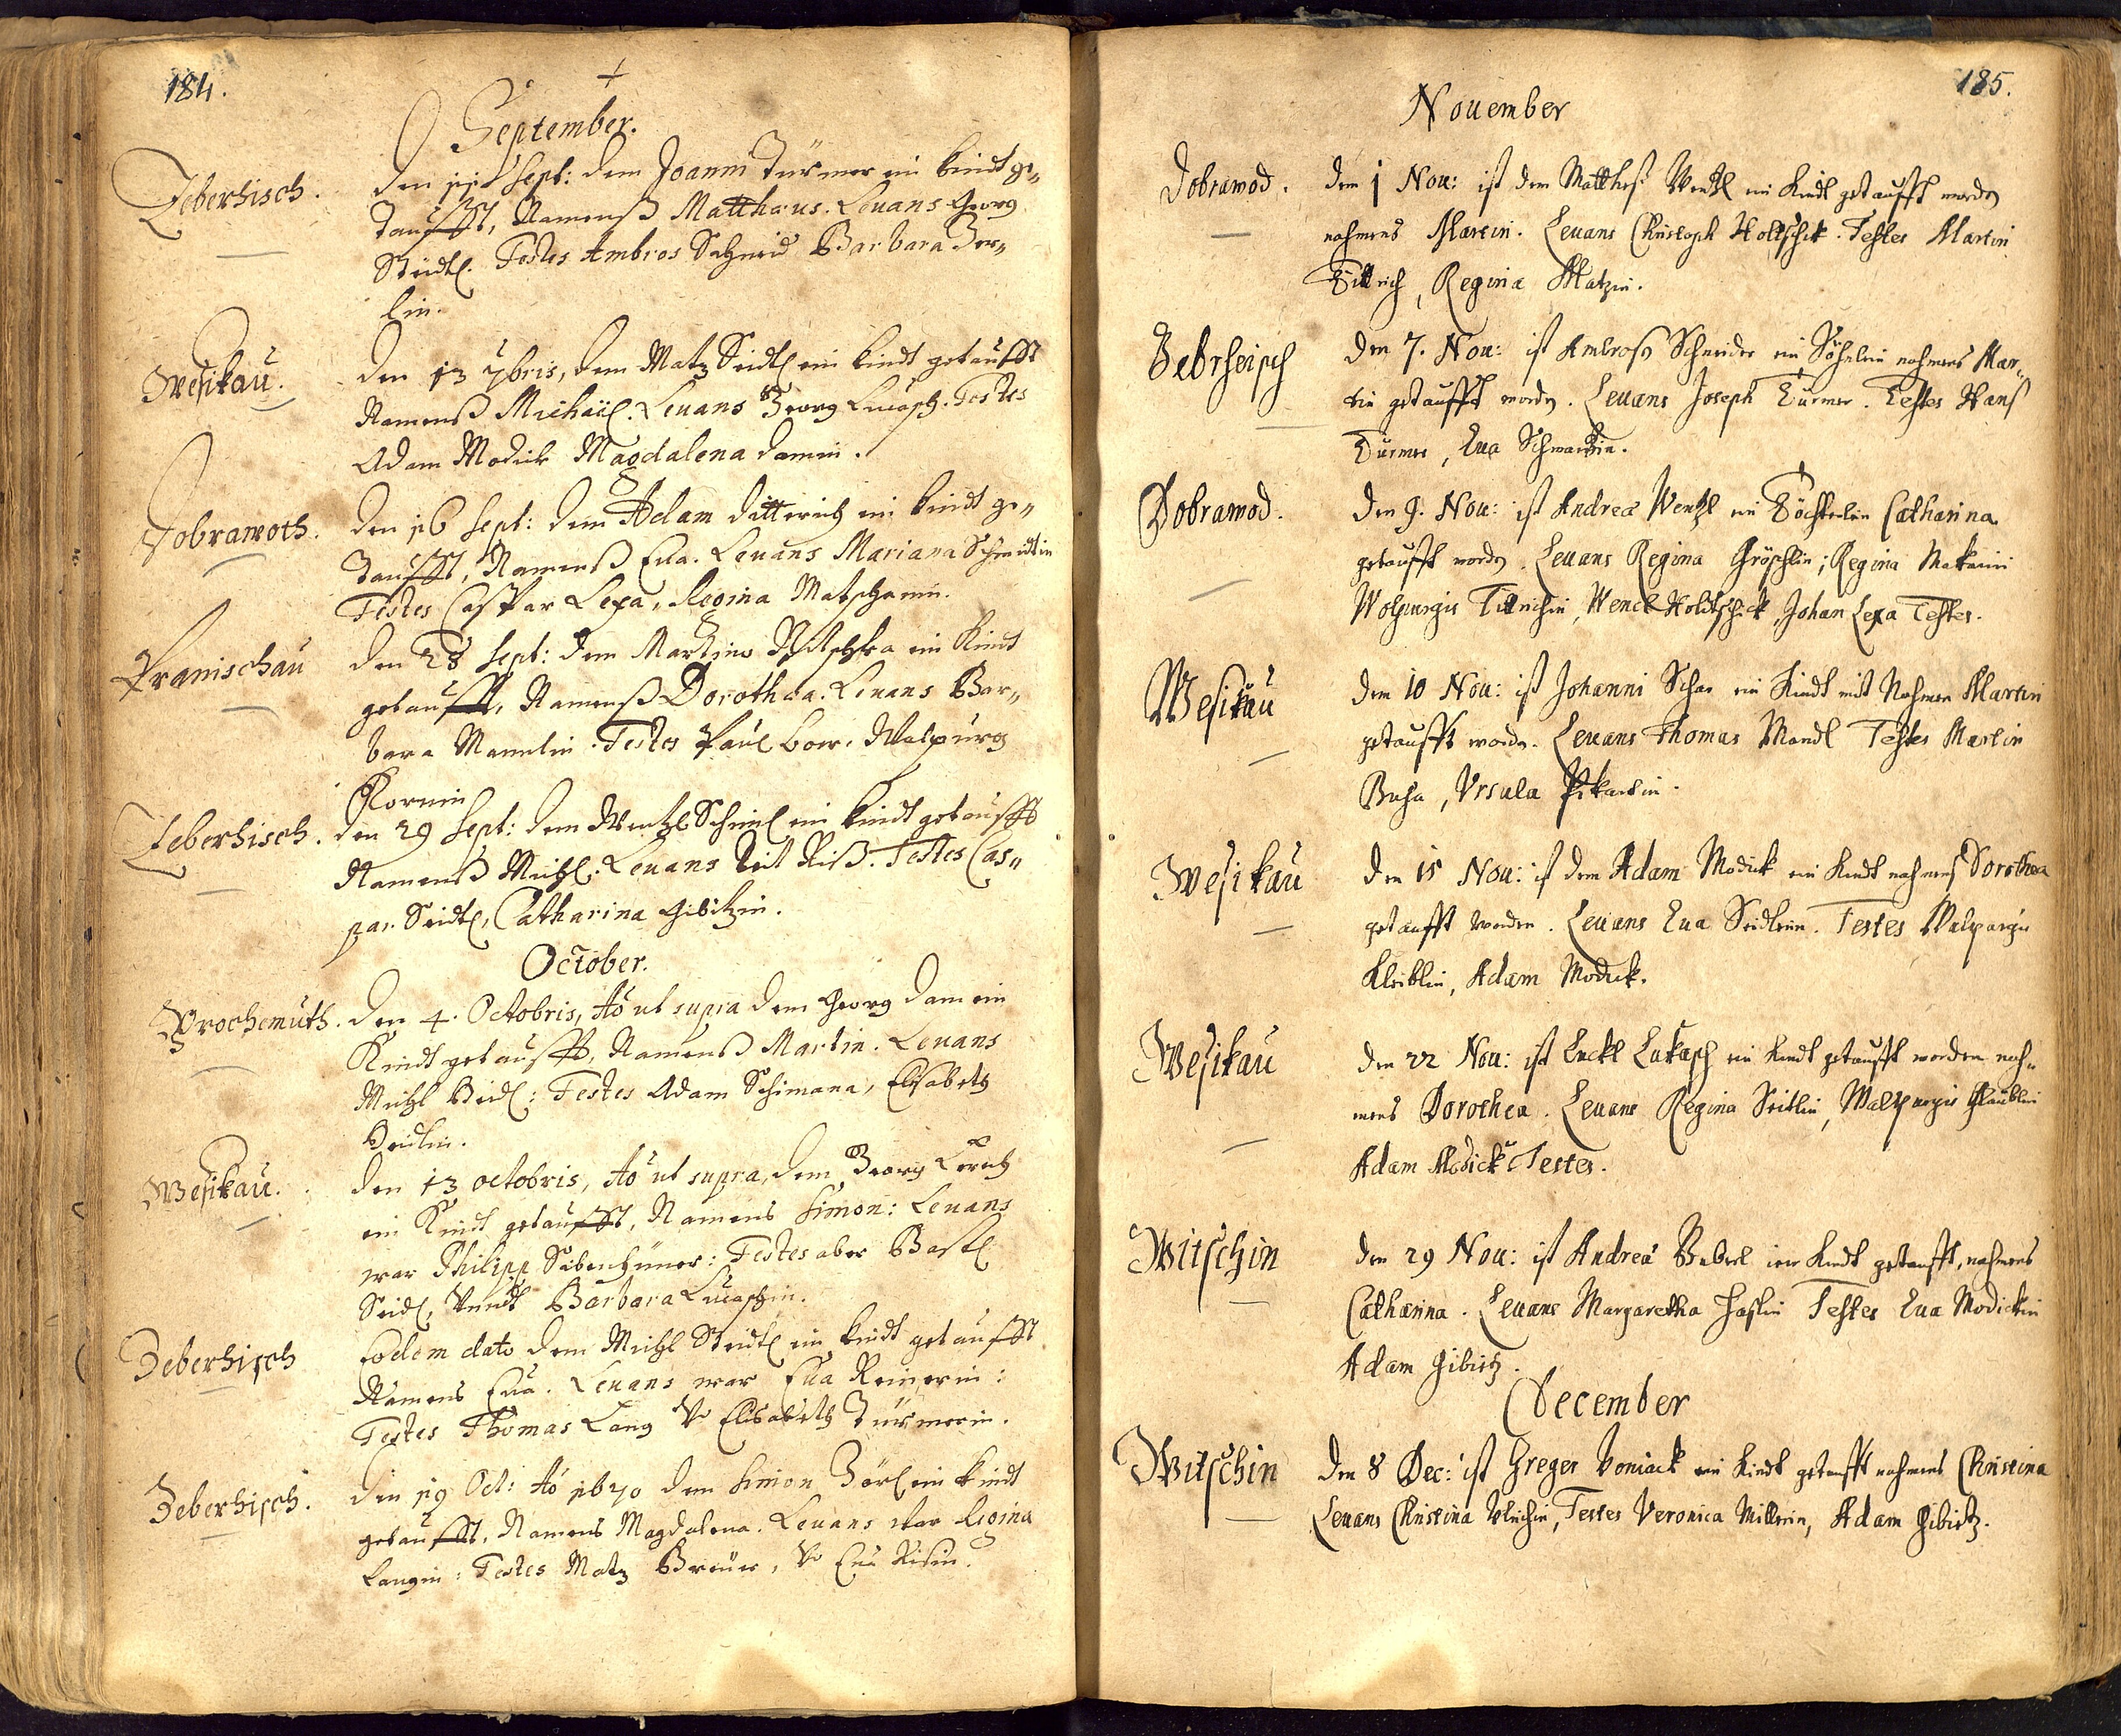 184.
September.
Zeberhisch. Den 11 Sept: dem Joanni Türmer ein kindt ge„
taufft, Namenß Matthæus. Levans Georg
Steidl. Testes Ambros Schneid Barbara Zer„
lin.
Wesikau. Den 13 7bris, dem Matz Seidl ein kindt getaufft
Namenß Michaël. Levans Georg Lucasch. Testes
Adam Modick Magdalena Damin.
Dobrawoth. Den 16 Sept: dem Adam Ditterich ein kindt ge„
taufft, Namenß Eva. Levans Mariana Schmidtin
Testes Caspar Lexa, Regina Matschanin.
Pranischau Den 28 Sept: dem Martino Nitschka ein Kindt
getaufft, Namenß Dorothæa. Levans Bar„
bara Mannlin. Testes Paul Cor. Walpurg
Kornin
Zeberhisch. Den 29 Sept: dem Wentzl Schinl ein kindt getaufft
Namenß Michl. Levans Veit Riß. Testes Cas„
par Seidl, Catharina Gibitzin.
October.
Prochomuth. Den 4. Octobris, Aõ ut supra dem Georg Dam ein
Kindt getaufft, Namenß Martin. Levans
Michl Beidl: Testes Adam Schimana, Elisabeth
Beidlin.
Wesikau. Den 13 octobris, Aõ ut supra, dem Georg Lerch
ein Kindt getaufft, Namens Simon: Levans
war Philipp Sibenhüner: Testes aber Bastl
Seidl, Vundt Barbara Lucaschin.
Zeberhisch Eodem dato dem Michl Steidl ein kindt getaufft
Namens Eva. Levans war Eva Reinerin:
Testes Thomas Lang Vo Elisabeth Türmerin.
Zeberhisch. Den 19 Oct: Aõ 1670 dem Simon Zörl ein kindt
getaufft, Namens Magdalena. Levans war Regina
Langin: Testes Matz Breuer, Vo Eva Risin.
185.
November
Dobrawod. Den 1 Nov: ist dem Matthes Wentzl ein Kindt getaufft worden
nahmens Martin. Levans Christoph Holtschik. Testes Martin
Dittrich, Regina Matzin.
Zebrheisch Den 7. Nov: ist Ambroß Schneider ein Söhnlein nahmens Mar„
tin getaufft worden. Levans Joseph Türmer. Testes Hans
Türmer, Eva
Dobrawod. Den 9. Nov: ist Andreæ Wentzl ein Töchterlein Catharina
getaufft worden. Levans Regina Gröschlin; Regina
Wolpurgis Wencl Holtschick, Johan Lexa Testes.
Wesikau Den 10 Nov: ist Johanni ein Kindt mit Nahmen Martin
getaufft worden. Levans Thomas Mandl Testes Martin
Buha, Vrsula
Wesikau Den 15 Nov: ist dem Adam Modick ein Kindt nahmens Dorothea
getaufft worden. Levans Eva Seidlein. Testes Walpurgis
Adam Modick.
Wesikau Den 22 Nov: ist Lukasch ein kindt getaufft worden nah„
mens Dorothea. Levans Regina Seitlin, Walpurgis
Adam Modick Testes.
Witschin Den 29 Nov: ist Andreæ ein Kindt getaufft, nahmens
Catharina. Levans Margaretha Haslin Testes Eva Modickin
Adam Gibitz.
December
Witschin Den 8 Dec: ist Greger Voniack ein Kindt getaufft nahmens Christina
Levans Christina Testes Veronica Millerin, Adam Gibitz.